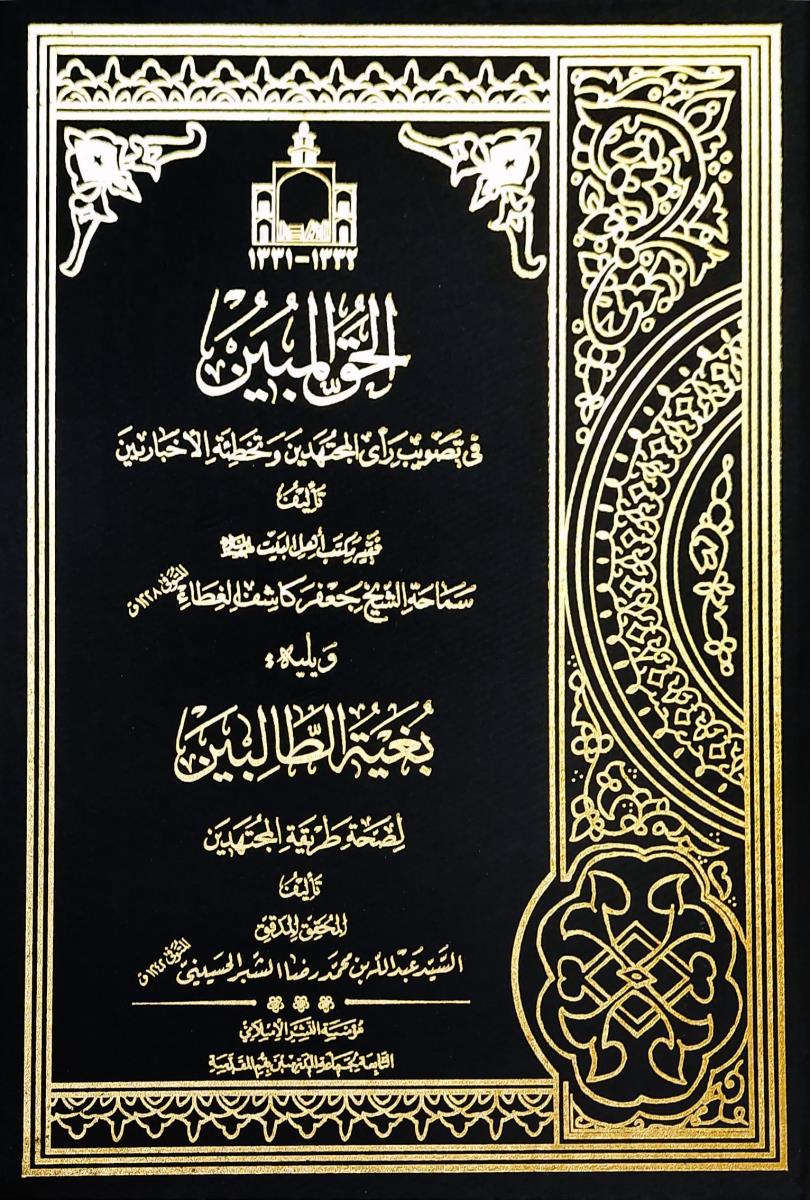 ١٣٣١-١٣٣٢
الحَقُّ المُبين
في تصويب رأى المجتهدين وتخطئة الأخباريين
تأليف
فقيه مكتب أهل البيت
سماحة الشيخ جعفر كاشف الغطاء المتوفى ١٢٢٨ ق
ويليه:
بُغية الطّالبين
لصحّة طريقة المجتهدين
تأليف
المحقق المدقق
السيّد عبد الله بن محمد رضا الشبر الحسيني المتوفى ١٢٤٢ ق
مؤسسة النشر الإسلامي
التابعة لجماعة المدرسين بقم المقدسة